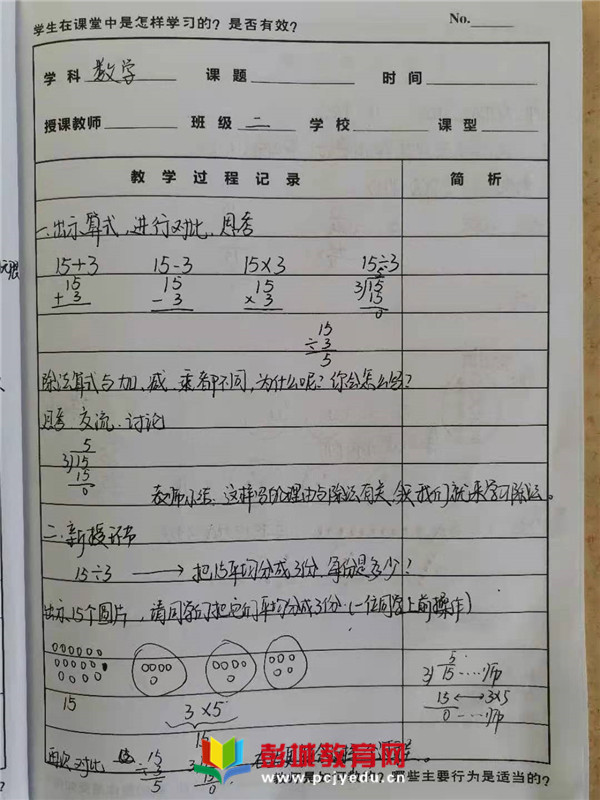 学生在课堂中是怎样学习的？是否有效？
No.
学科 数学 课题 时间
授课教师 班级 二 学校 课型
教学过程记录 简析
一、出示算式，进行对比，思考
15+3 15-3 15×3 15÷3
15 15 15 5
+3 -3 ×3 3 15
15
0
15
÷3
5
除法算式与加、减、乘都不同，为什么呢？你会怎么写？
思考 交流 讨论
5
3 15
15
0
教师小结：这样写的理由与除法有关，我们就来学习除法。
二、新授环节
15÷3 → 把15平均分成3份，每份是多少？
出示15个圆片，请同学们把它们平均分成3份（一位同学上前操作）
5
3 15 ……师
15 3×5
0 ……师
15 3×5
15
再次对比
15
÷3
5
彭城教育网
www.pcjyedu.cn
哪些主要行为是适当的？